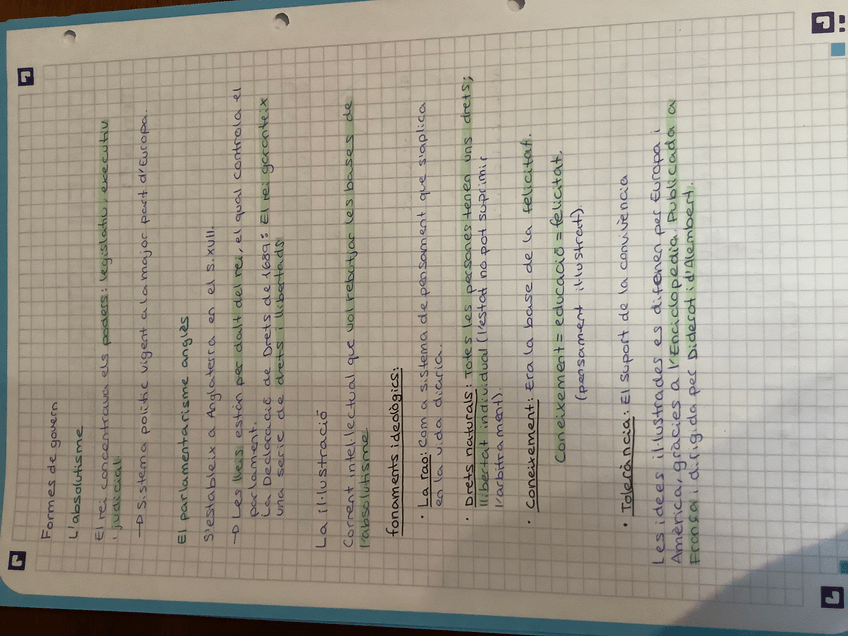 Formes de govern
L'absolutisme
El rei concentrava els poders: legislatiu, executiu
i judicial.
→ Sistema polític vigent a la major part d'Europa.
El parlamentarisme anglès
S'estableix a Anglaterra en el s.XVII.
→ Les lleis estàn per dalt del rei, el qual controla el
parlament.
La Declaració de Drets de 1689: El rei garanteix
una serie de drets i llibertads
La il·lustració
Corrent intel·lectual que vol rebutjar les bases de
l'absolutisme
fonaments ideològics:
· La raó: Com a sistema de pensament que s'aplica
en la vida diaria.
· Drets naturals: Totes les persones tenen uns drets;
llibertat individual (l'estat no pot suprimir
l'arbitrament).
· Coneixement: Era la base de la felicitat.
Coneixement = educació = felicitat.
(pensament il·lustrat).
· Tolerància: El suport de la convivència
Les idees il·lustrades es difonen per Europa i
Amèrica, gràcies a l'Enciclopèdia. Publicada a
França i dirigida per Diderot i d'Alembert.